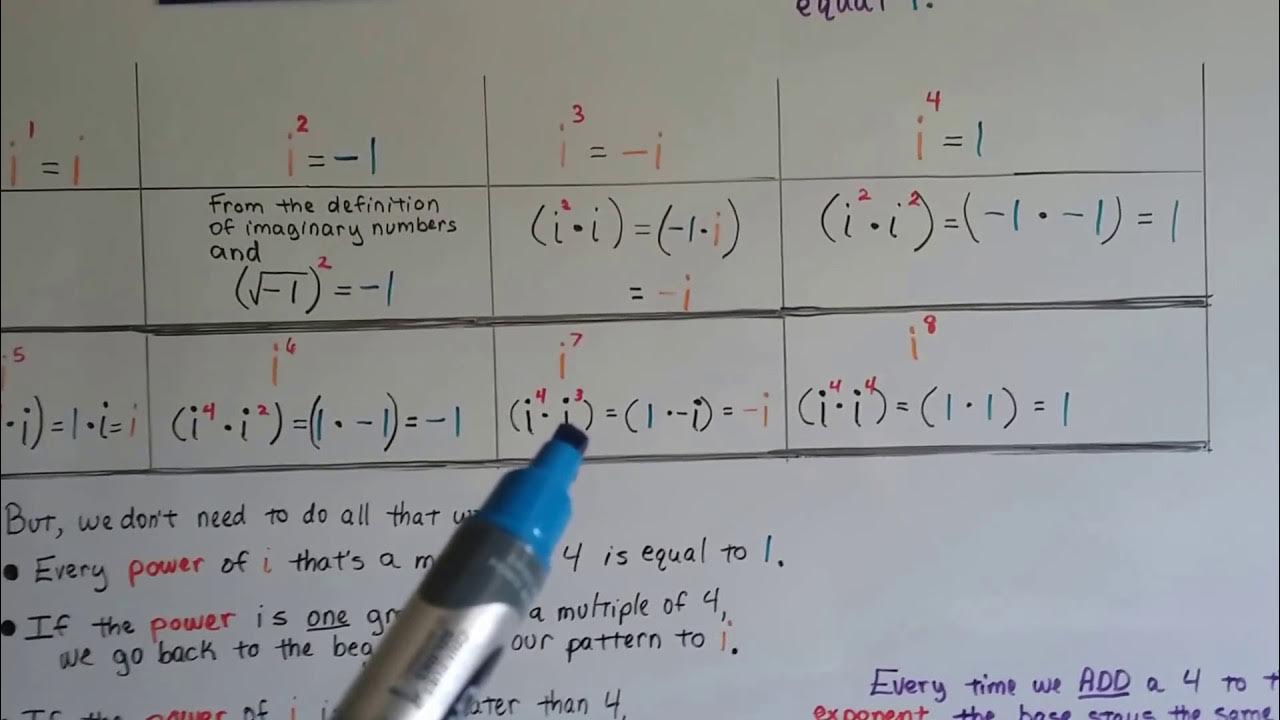 equal 1.
i¹ = i
i² = -1
i³ = -i
i⁴ = 1
From the definition
of imaginary numbers
and
(√-1)² = -1
(i² · i) = (-1 · i)
= -i
(i² · i²) = (-1 · -1) = 1
5
· i) = 1 · i = i
i⁶
(i⁴ · i²) = (1 · -1) = -1
i⁷
(i⁴ · i³) = (1 · -i) = -i
i⁸
(i⁴ · i⁴) = (1 · 1) = 1
But, we don't need to do all that
• Every power of i that's a 4 is equal to 1.
• If the power is one a multiple of 4,
we go back to the our pattern to i.
Every time we ADD a 4 to
If the power of i than 4,
exponent the base stays the same